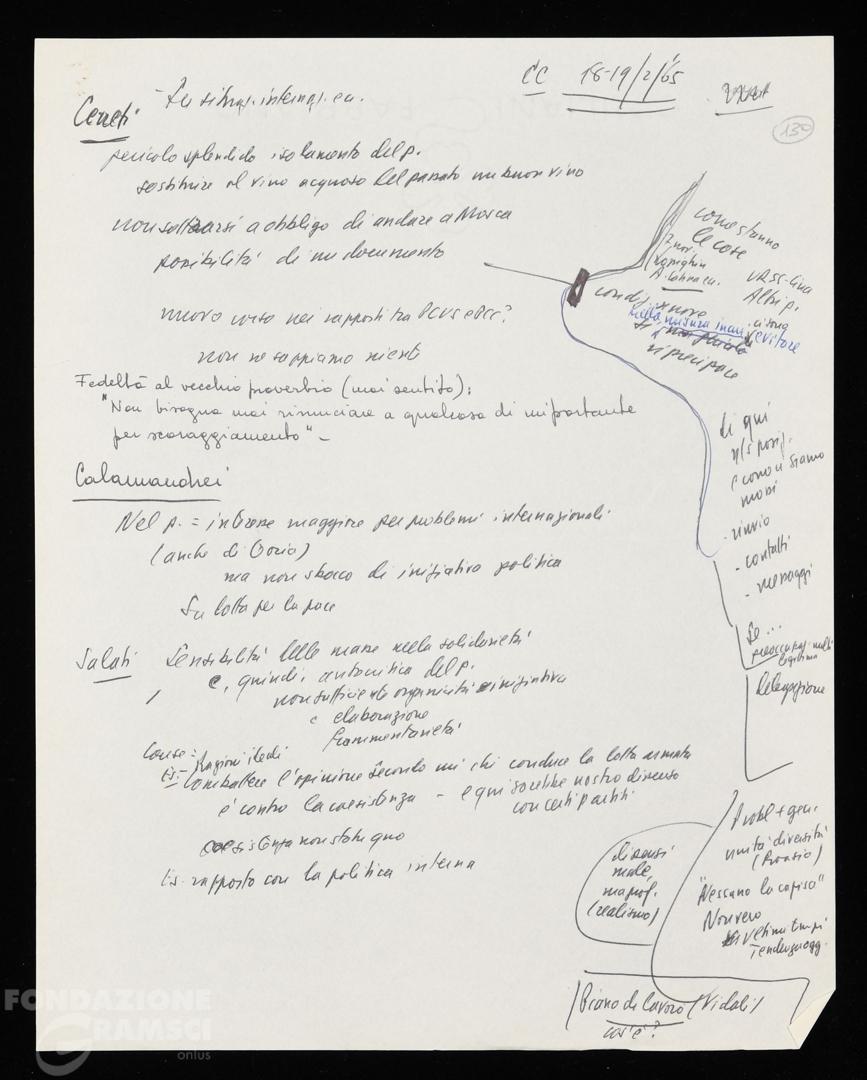 CC 18-19/2/65
130
Cerreti - Su situaz. internaz. ecc.
pericolo splendido isolamento del p.
sostituire al vino acquoso del passato un buon vino
non sottrarsi a obbligo di andare a Mosca
possibilità di un documento
nuovo corso nei rapporti tra PCUS e PCC?
non ne sappiamo niente
Fedeltà al vecchio proverbio (mai sentito):
"Non bisogna mai rinunciare a qualcosa di importante
per scoraggiamento" -
Calamandrei
Nel p. = interesse maggiore per problemi internazionali
(anche di Gozio)
ma non sbocco di iniziativa politica
Su lotta per la pace
Salati Sensibilità delle masse nella solidarietà
e, quindi, autocritica del p.
non sufficiente organicità e iniziativa
e elaborazione
frammentarietà
Cause: Ragioni ideali
Es. - Combattere l'opinione secondo cui chi conduce la lotta armata
è contro la coesistenza - e qui sarebbe nostro dissenso
con certi partiti
coesistenza non status quo
Es. rapporto con la politica interna
come stanno
le cose
2 nov.
URSS-Cina
Altri p.
condiz. nuove
nella misura in cui
evitare
si precipace
di qui
n/s posiz.
e come ci siamo
mossi
- rinvio
- contatti
- messaggi
Se ...
preoccupaz. molto
legittima
Delegazione
Probl + gen.
unità diversità
(Roasio)
"Nessuno la capisce"
Non vero
ultimi tempi
Tendenza ogg.
dirsi
male,
ma prof.
(realismo)
Piano di lavoro (Vidali)
cos'è?
FONDAZIONE
GRAMSCI
onlus